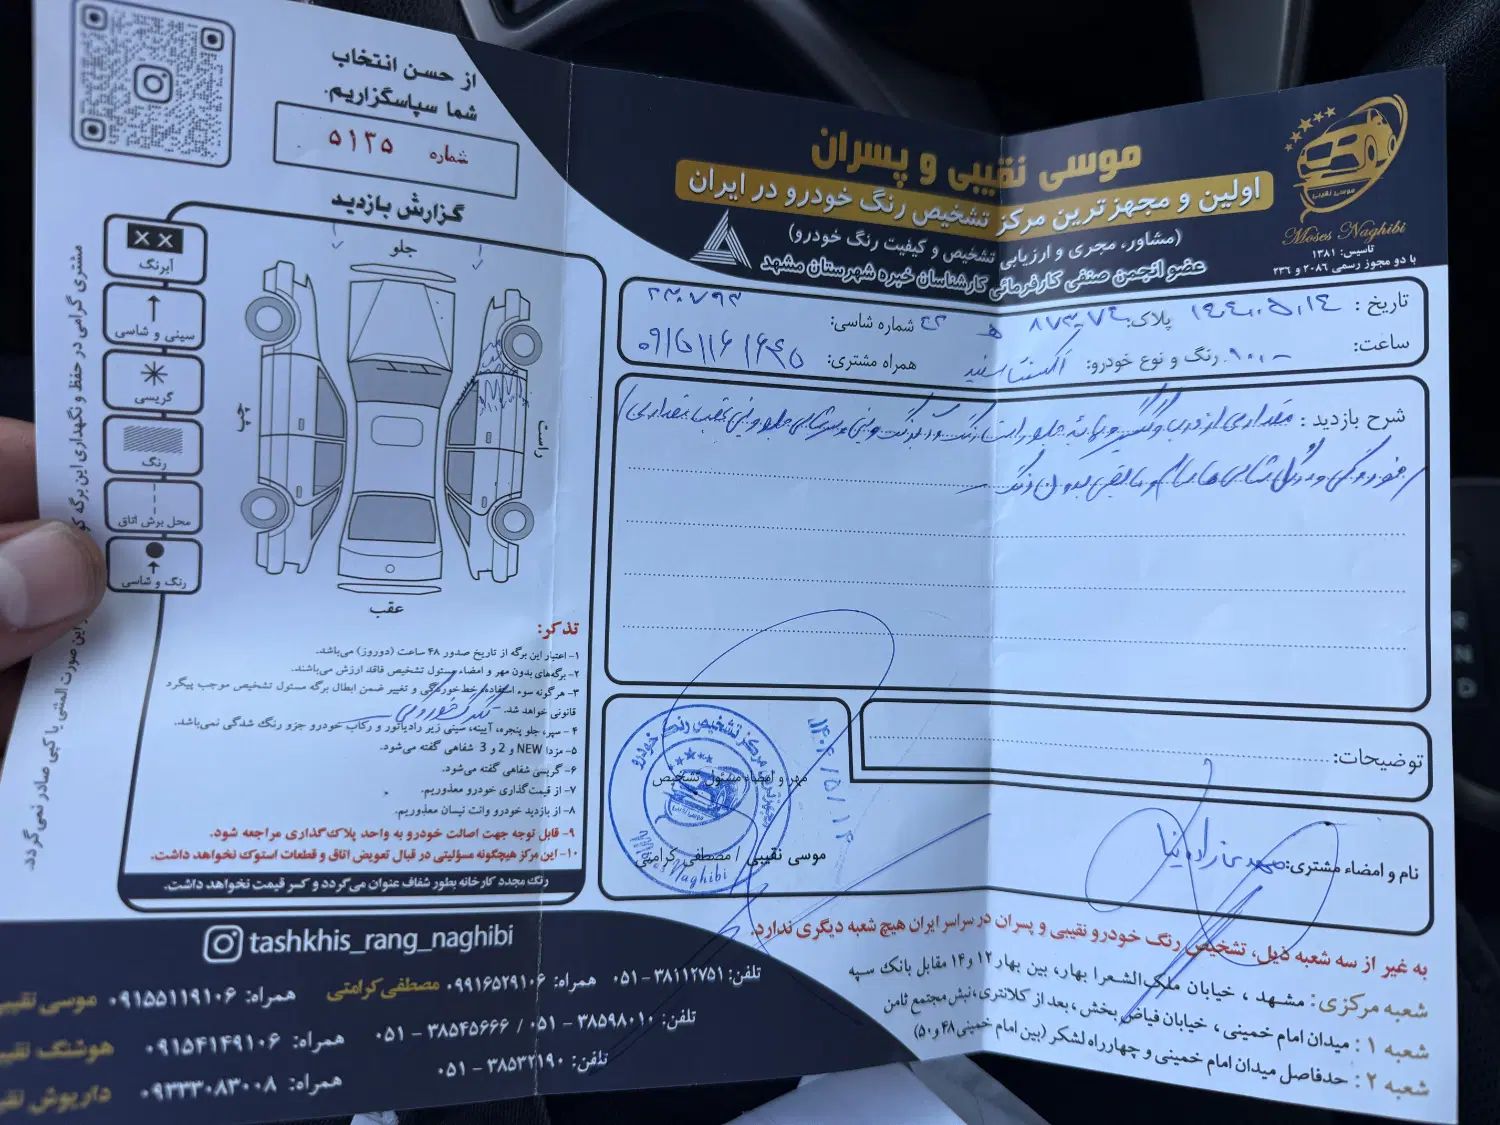 از حسن انتخاب
شما سپاسگزاریم.
شماره ۵۱۳۵
گزارش بازدید
جلو
چپ
راست
عقب
آبرنگ
سینی و شاسی
گریسی
رنگ
محل برش اتاق
رنگ و شاسی
مشتری گرامی در حفظ و نگهداری این برگه
این صورت المثنی یا کپی صادر نمی‌گردد.
تذکر:
۱- اعتبار این برگه از تاریخ صدور ۴۸ ساعت (دو روز) می‌باشد.
۲- برگه‌های بدون مهر و امضاء مسئول تشخیص فاقد ارزش می‌باشند.
۳- هرگونه سوء استفاده، خط‌خوردگی و تغییر ضمن ابطال برگه مسئول تشخیص موجب پیگرد
قانونی خواهد شد.
۴- سپر، جلو پنجره، آیینه، سینی زیر رادیاتور و رکاب خودرو جزو رنگ شدگی نمی‌باشد.
۵- مزدا NEW و 2 و 3 شفاهی گفته می‌شود.
۶- گریسی شفاهی گفته می‌شود.
۷- از قیمت‌گذاری خودرو معذوریم.
۸- از بازدید خودرو وانت نیسان معذوریم.
۹- قابل توجه جهت اصالت خودرو به واحد پلاک‌گذاری مراجعه شود.
۱۰- این مرکز هیچگونه مسؤلیتی در قبال تعویض اتاق و قطعات استوک نخواهد داشت.
رنگ مجدد کارخانه بطور شفاف عنوان می‌گردد و کسر قیمت نخواهد داشت.
موسی نقیبی و پسران
اولین و مجهزترین مرکز تشخیص رنگ خودرو در ایران
(مشاور، مجری و ارزیابی تشخیص و کیفیت رنگ خودرو)
عضو انجمن صنفی کارفرمائی کارشناسان خبره شهرستان مشهد
موسی نقیبی
Moses Naghibi
تاسیس: ۱۳۸۱
با دو مجوز رسمی ۲۰۸۶ و ۲۳۶
تاریخ: ۱۴۰۴,۵,۱۴ پلاک: شماره شاسی:
ساعت: ۱۰,۰۰ رنگ و نوع خودرو: اکسنت سفید همراه مشتری: ۰۹۱۵۱۱۶۱۶۴۵
شرح بازدید: مقداری از درب و گلگیر
توضیحات:
مهر و امضاء مسئول تشخیص
موسی نقیبی / مصطفی کرامتی
مرکز تشخیص رنگ خودرو
Moses Naghibi
۱۴۰۴/۵/۱۴
نام و امضاء مشتری:
به غیر از سه شعبه ذیل، تشخیص رنگ خودرو نقیبی و پسران در سراسر ایران هیچ شعبه دیگری ندارد.
شعبه مرکزی: مشهد، خیابان ملک‌الشعرا بهار، بین بهار ۱۲ و ۱۴ مقابل بانک سپه
شعبه ۱: میدان امام خمینی، خیابان فیاض بخش، بعد از کلانتری، نبش مجتمع ثامن
شعبه ۲: حدفاصل میدان امام خمینی و چهارراه لشکر (بین امام خمینی ۴۸ و ۵۰)
tashkhis_rang_naghibi
تلفن: ۳۸۱۱۲۷۵۱ - ۰۵۱ همراه: ۰۹۹۱۶۵۲۹۱۰۶ مصطفی کرامتی همراه: ۰۹۱۵۵۱۱۹۱۰۶ موسی نقیبی
تلفن: ۳۸۵۹۸۰۱۰ - ۰۵۱ / ۳۸۵۴۵۶۶۶ - ۰۵۱ همراه: ۰۹۱۵۴۱۴۹۱۰۶ هوشنگ
تلفن: ۳۸۵۳۲۱۹۰ - ۰۵۱ همراه: ۰۹۳۳۳۰۸۳۰۰۸ داریوش
R
N
D